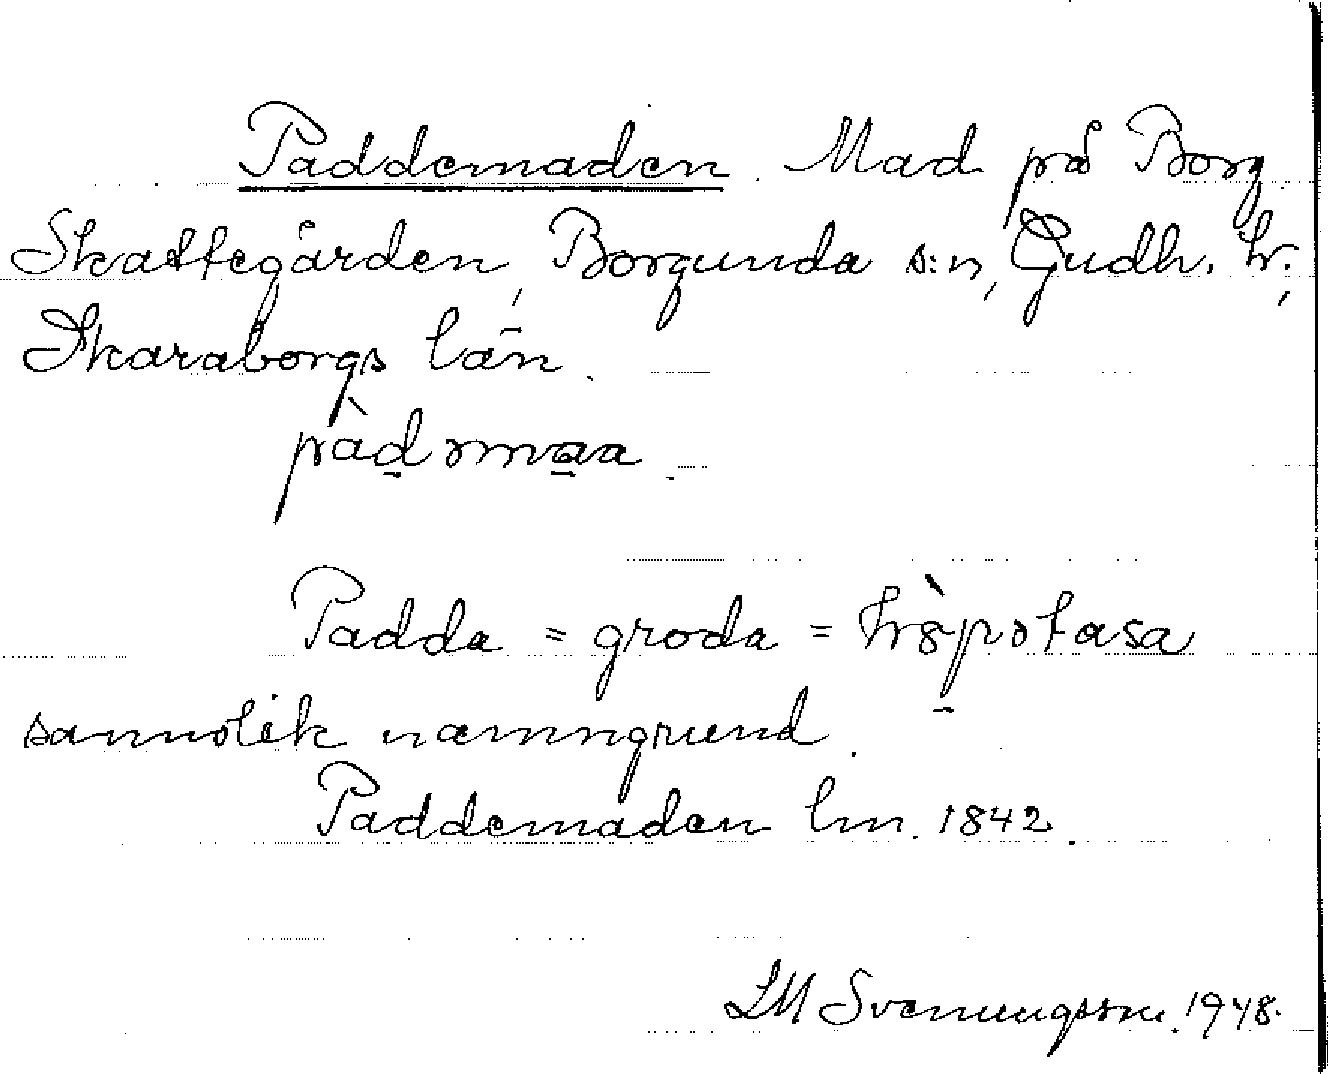 Paddemaden. Mad på Borg
Skattegården, Borgunda s:n, Gudh. hr.,
Skaraborgs län.
Padda = groda =
sannolik namngrund.
Paddemaden lm. 1842.
LM Svenungsson. 1948.